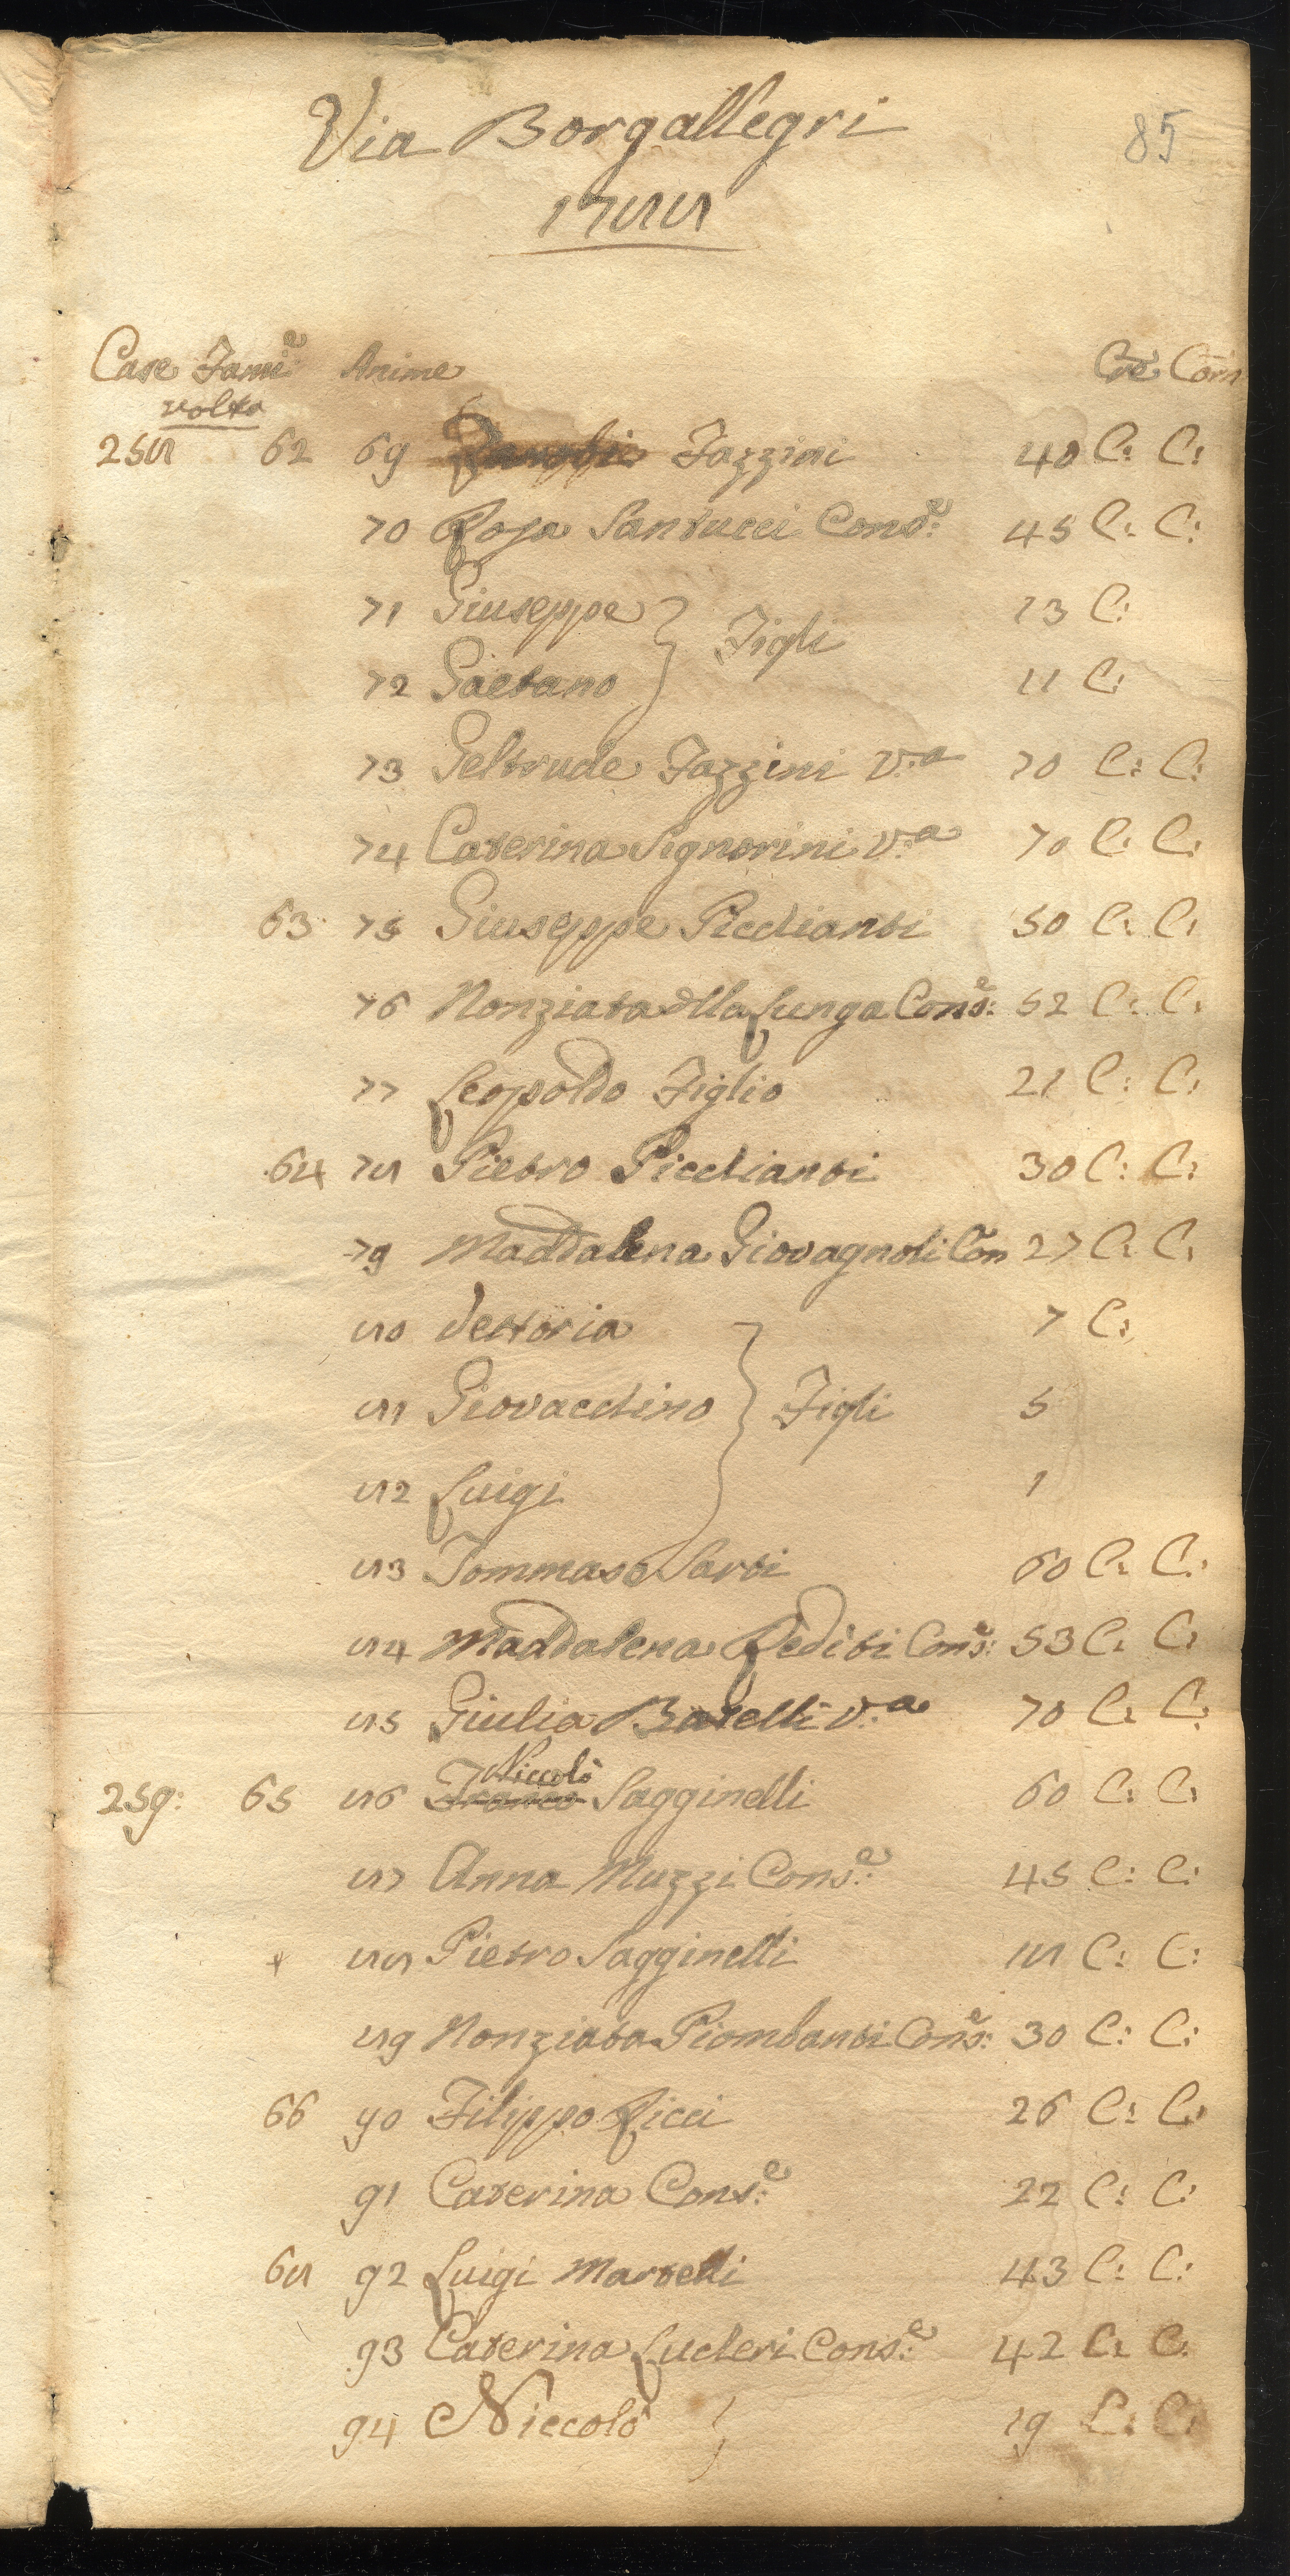 Via Borgallegri
85
1788
Case Fami.e Anime Cre Com
volta
258 62 69 Zanobi Fazzini 40 C: C:
70 Rosa Santucci Cons.e: 45 C: C:
71 Giuseppe } Figli 13 C:
72 Gaetano 11 C:
73 Geltrude Fazzini V:a 70 C: C:
74 Caterina Signorini V:a 70 C: C:
63 75 Giuseppe Picchianti 50 C: C:
76 Nonziata della Lunga Cons.e: 52 C: C:
77 Leopoldo Figlio 21 C: C:
64 78 Pietro Picchianti 30 C: C:
79 Maddalena Giovagnoli Con 27 C: C:
80 Vettoria 7 C:
81 Giovacchino } Figli 5
82 Luigi 1
83 Tommaso Sarti 60 C: C:
84 Maddalena Rediti Cons.e: 53 C: C:
85 Giulia Baselli V:a 70 C: C:
Niccolò
259: 65 86 Franco Sagginelli 60 C: C:
87 Anna Muzzi Cons.e: 45 C: C:
88 Pietro Sagginelli 18 C: C:
89 Nonziata Piombanti Cons.e: 30 C: C:
66 90 Filippo Ricci 26 C: C:
91 Caterina Cons.e: 22 C: C:
68 92 Luigi Martelli 43 C: C:
93 Caterina Lucheri Cons.e: 42 C: C:
94 Niccolò } 19 C: C: